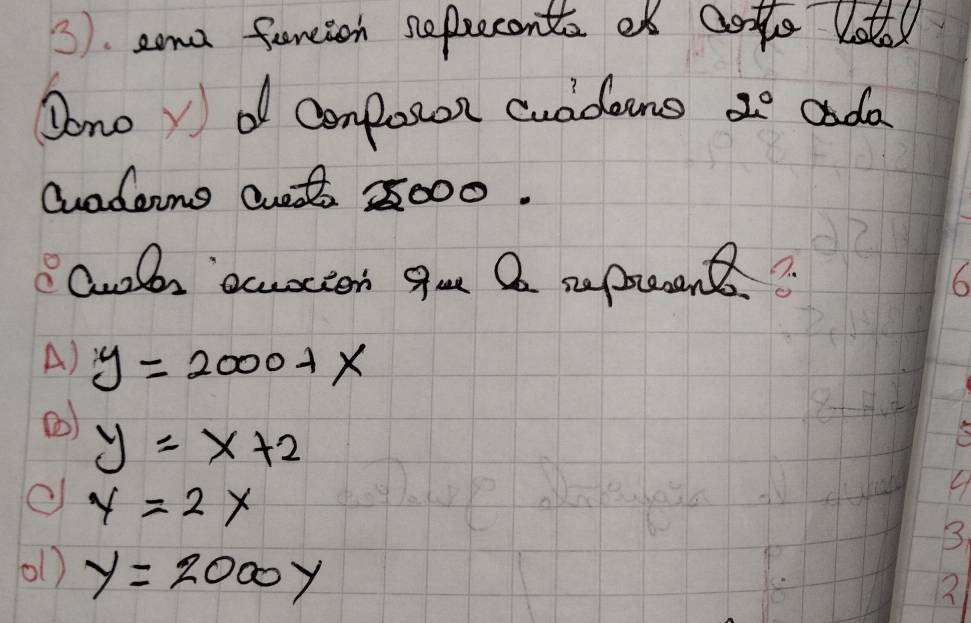 3). una función represcenta el costo total
(Dono y) al comparar cuáderno si cada
cuaderno cuesta 2000.
¿Cuales ecuación que la representa?
A) y = 2000 + x
B) y = x + 2
C) y = 2 x
d) y = 2000 y
6
5
4
3
2